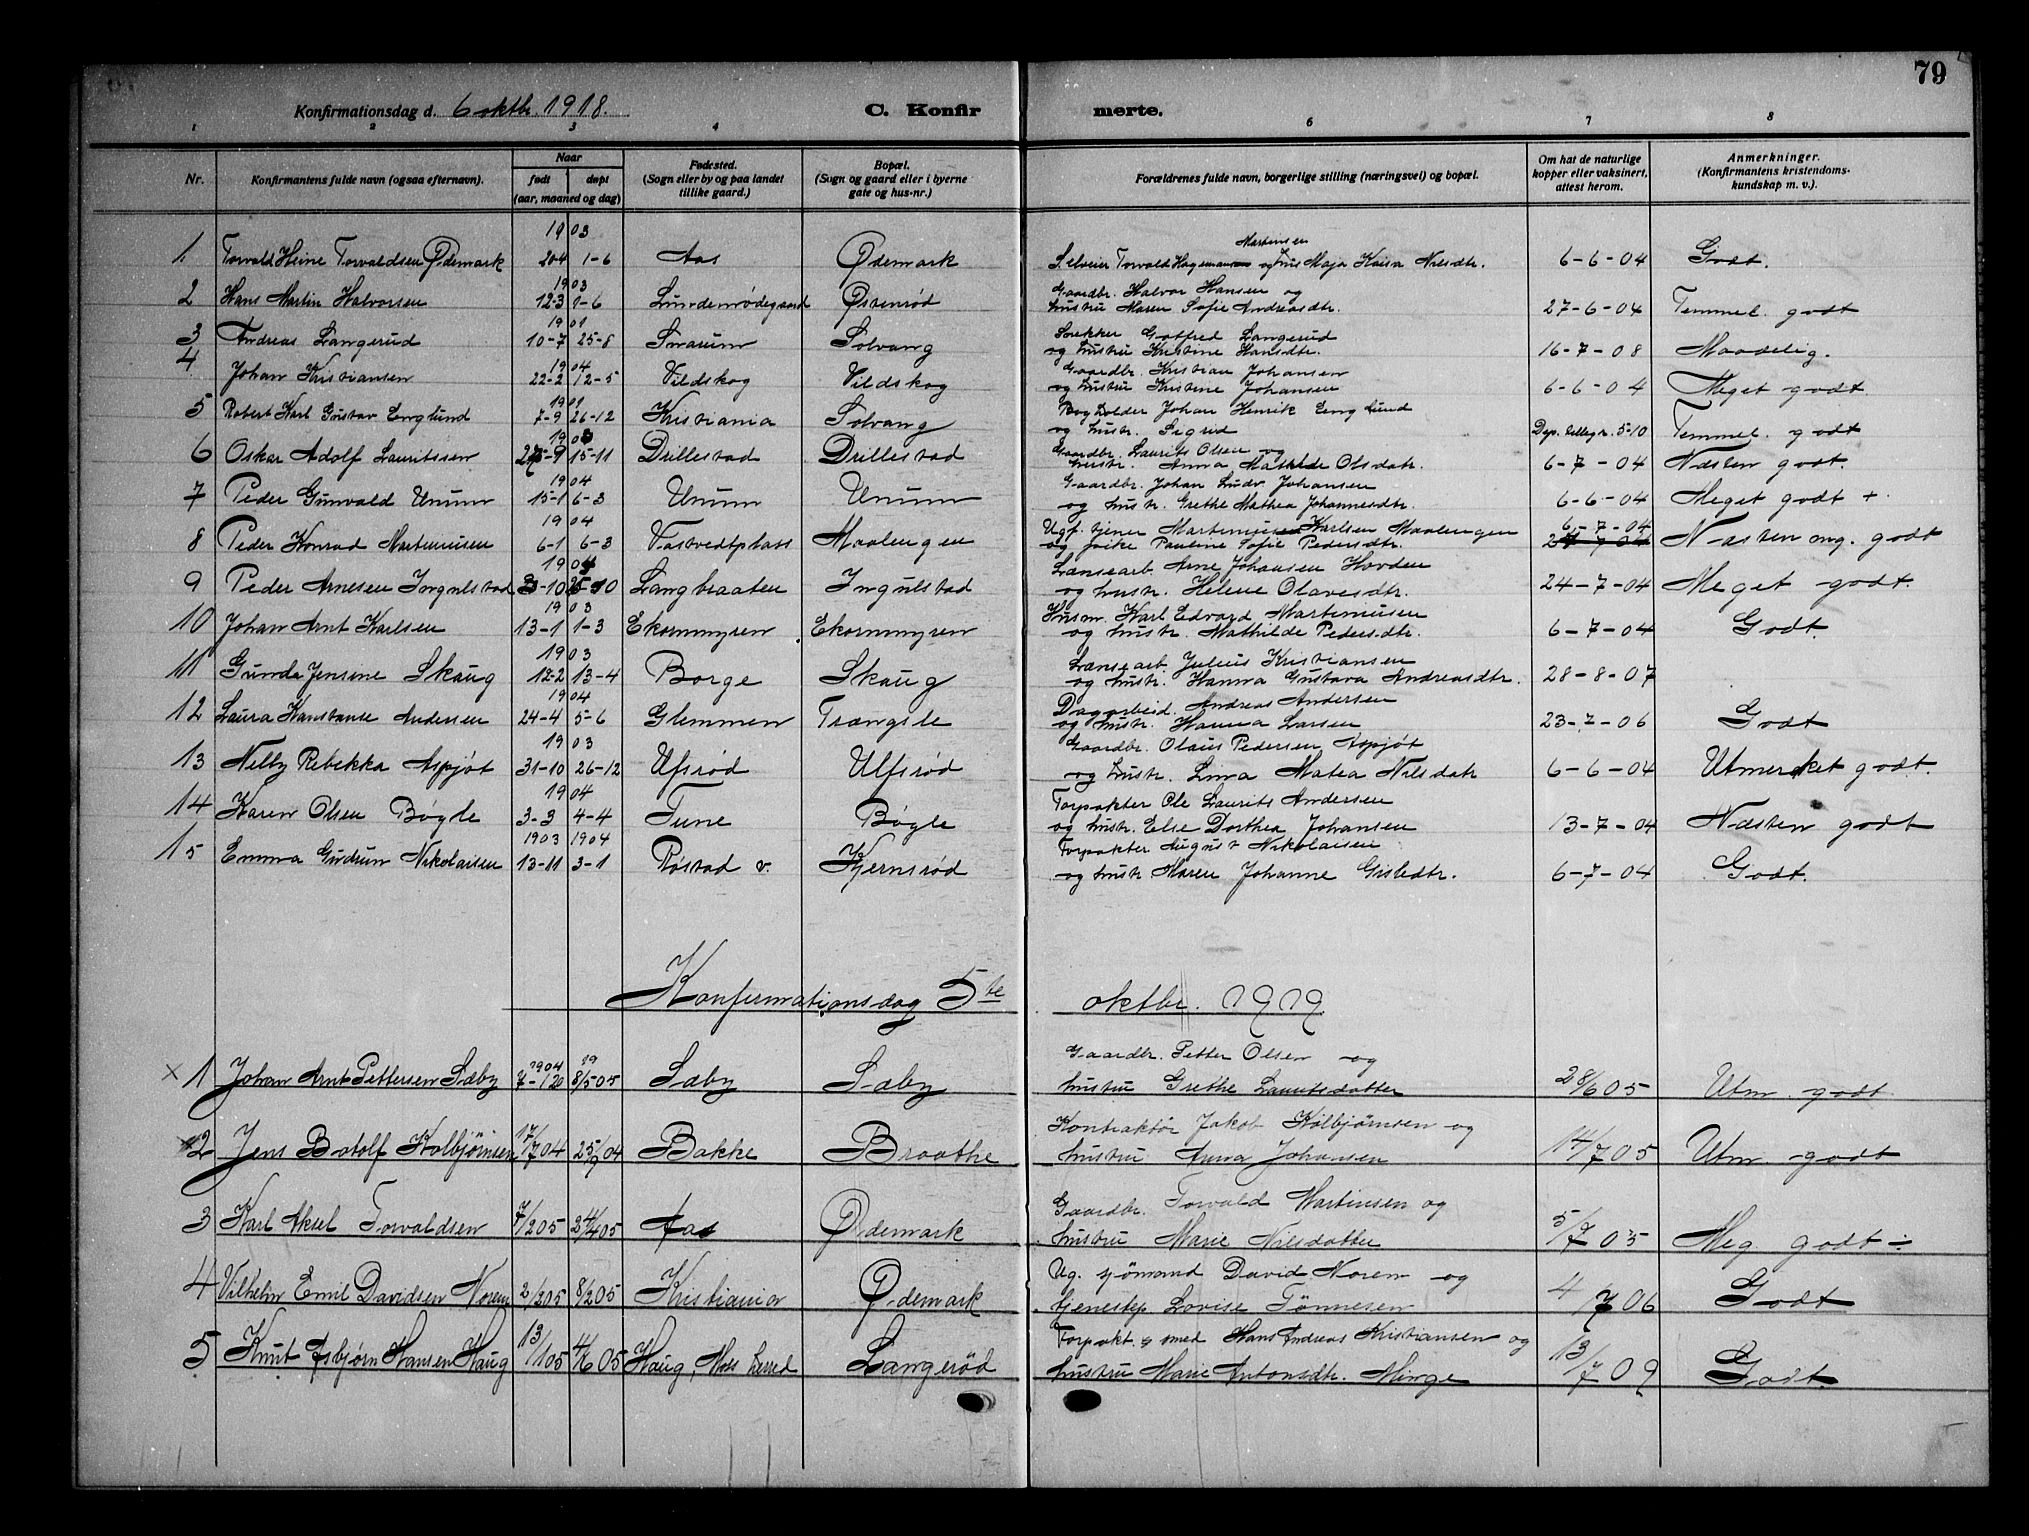 79
Konfirmationsdag d. 6 oktbr. 1918. C. Konfir merte.
1 2 3 4 6 7 8
Nr. Konfirmantens fulde navn (ogsaa efternavn). Naar født døpt (aar, maaned og dag) Fødested. (Sogn eller by og paa landet tillike gaard.) Bopæl. (Sogn og gaard eller i byerne gate og hus-nr.) Forældrenes fulde navn, borgerlige stilling (næringsvei) og bopæl. Om hat de naturlige kopper eller vaksinert, attest herom. Anmerkninger. (Konfirmantens kristendoms-kundskap m. v.).
1903
1. Torvald Heine Torvaldsen Ødemark 20-4 1-6 Aas Ødemark S. eleier Torvald Martinsen og hus Maja Kaisa Nilsdtr. 6-6-04 Godt.
1903 Gaardbr. Halvor Hansen og
2 Hans Martin Halvorsen 12-3 1-6 Lundenrødegaard Østenrød hustru Maren Sofie Andreasdtr. 27-6-04 Temmel. godt
1901 Gotfred Langerud
3 Andreas Langerud 10-7 25-8 Snarum Solvang og hustru Kristine Hansdtr. 16-7-08 Maadelig.
1904 Gaardbr. Kristian Johansen
4 Johan Kristiansen 22-2 12-5 Vildskog Vildskog og hustru Kristine Johansen 6-6-04 Meget godt.
1901 Bogholder Johan Henrik Eng lund
5 Robert Karl Gustav Englund 7-9 26-12 Kristiania Solvang og hustr. Sigrid 5-10 Temmel. godt
1903 Gaardbr. Laurits Olsen og
6 Oskar Adolf Lauritssen 27-9 15-11 Drillestad Drillestad hustr. Anna Mathilde Olsdatr. 6-7-04 Næsten godt.
1904 Gaardbr. Johan Ludv. Johansen
7 Peder Gunvald Unum 15-1 6-3 Unum Unum og hustr. Grethe Mathea Johannesdtr. 6-6-04 Meget godt +
1904 Ugf. tjener Martinius Karlsen Maalengen 6-7-04
8 Peder Konrad Martiniusen 6-1 6-3 Vastvedtplass Maalengen og pike Pauline Sofie Pedersdtr. Næsten mg. godt
1903 Lænsearb. Arne Johansen Hovden
9 Peder Arnesen Ingulstad 3-10 25-10 Langbraaten Ingulstad og hustr. Helene Olavesdtr. 24-7-04 Meget godt.
1903 Husm. Karl Edvard Martiniusen
10 Johan Arnt Karlsen 13-1 1-3 Ekornmyren Ekornmyren og hustr. Mathilde Pedersdtr. 6-7-04 Godt.
1903 Lænsearb. Julius Kristiansen
11 Gunda Jensine Skaug 12-2 13-4 Borge Skaug og hustr. Hanna Gustava Andreasdtr. 28-8-07
1904 Dagarbeid. Andreas Andersen
12 Laura Konstanse Andersen 24-4 5-6 Glemmen Trængsle og hustr. Hanna Larsen 23-7-06 Godt
1903 Gaardbr. Olaus Pedersen Aspjøt
13 Nelly Rebekka Aspjøt 31-10 26-12 Ufsrød Ulfsrød og hustr. Lina Matea Nilsdatr 6-6-04 Utmerket godt.
1904 Forpakter Ole Laurits Andersen
14 Karen Olsen Bøgle 3-3 4-4 Tune Bøgle og hustr. Else Dorthea Johansen 13-7-04 Næsten godt
1903 1904 Forpakter August Nikolaisen
15 Emma Gudrun Nikolaisen 13-11 3-1 Røstad v. Kjernsrød og hustr Karen Johanne Grisledtr. 6-7-04 Godt.
Konfirmationsdag 5te oktbr. 1919.
1904 19 Gaardbr. Petter Olsen og
× 1 Johan Arnt Pettersen Sæby 7-120 8/5 05 Sæby Sæby hustru Grethe Lauritsdatter 28/6 05 Utm. godt
Kontraktør Jakob Kolbjørnsen og
2 Jens Botolf Kolbjørnsen 17/7 04 25/9 04 Bakke Braathe hustru Anna Johansen 14/7 05 Utm. godt
Gaardbr. Torvald Martinsen og
3 Karl Aksel Torvaldsen 7/2 05 24/4 05 Aas Ødemark hustru Marie Nilsdatter 5/7 05 Meg godt ÷
Ug. sjømand David Noren og
4 Vilhelm Emil Davidsen Noren 2/2 05 8/2 05 Kristiania Ødemark tjenestep Lovise Tønnesen 4/7 06 Godt
Forpakt. & smed Hans Andreas Kristiansen og
5 Knut Asbjørn Hansen Haug 13/1 05 4/6 05 Haug, Moss herred Langerød hustru Marie Antonsdtr. Minge 13/7 09 Godt.